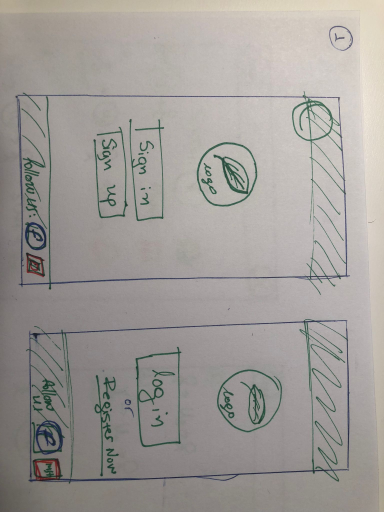 1
logo
Sign in
Sign up
follow us:
logo
log in
or
Register Now
follow
us